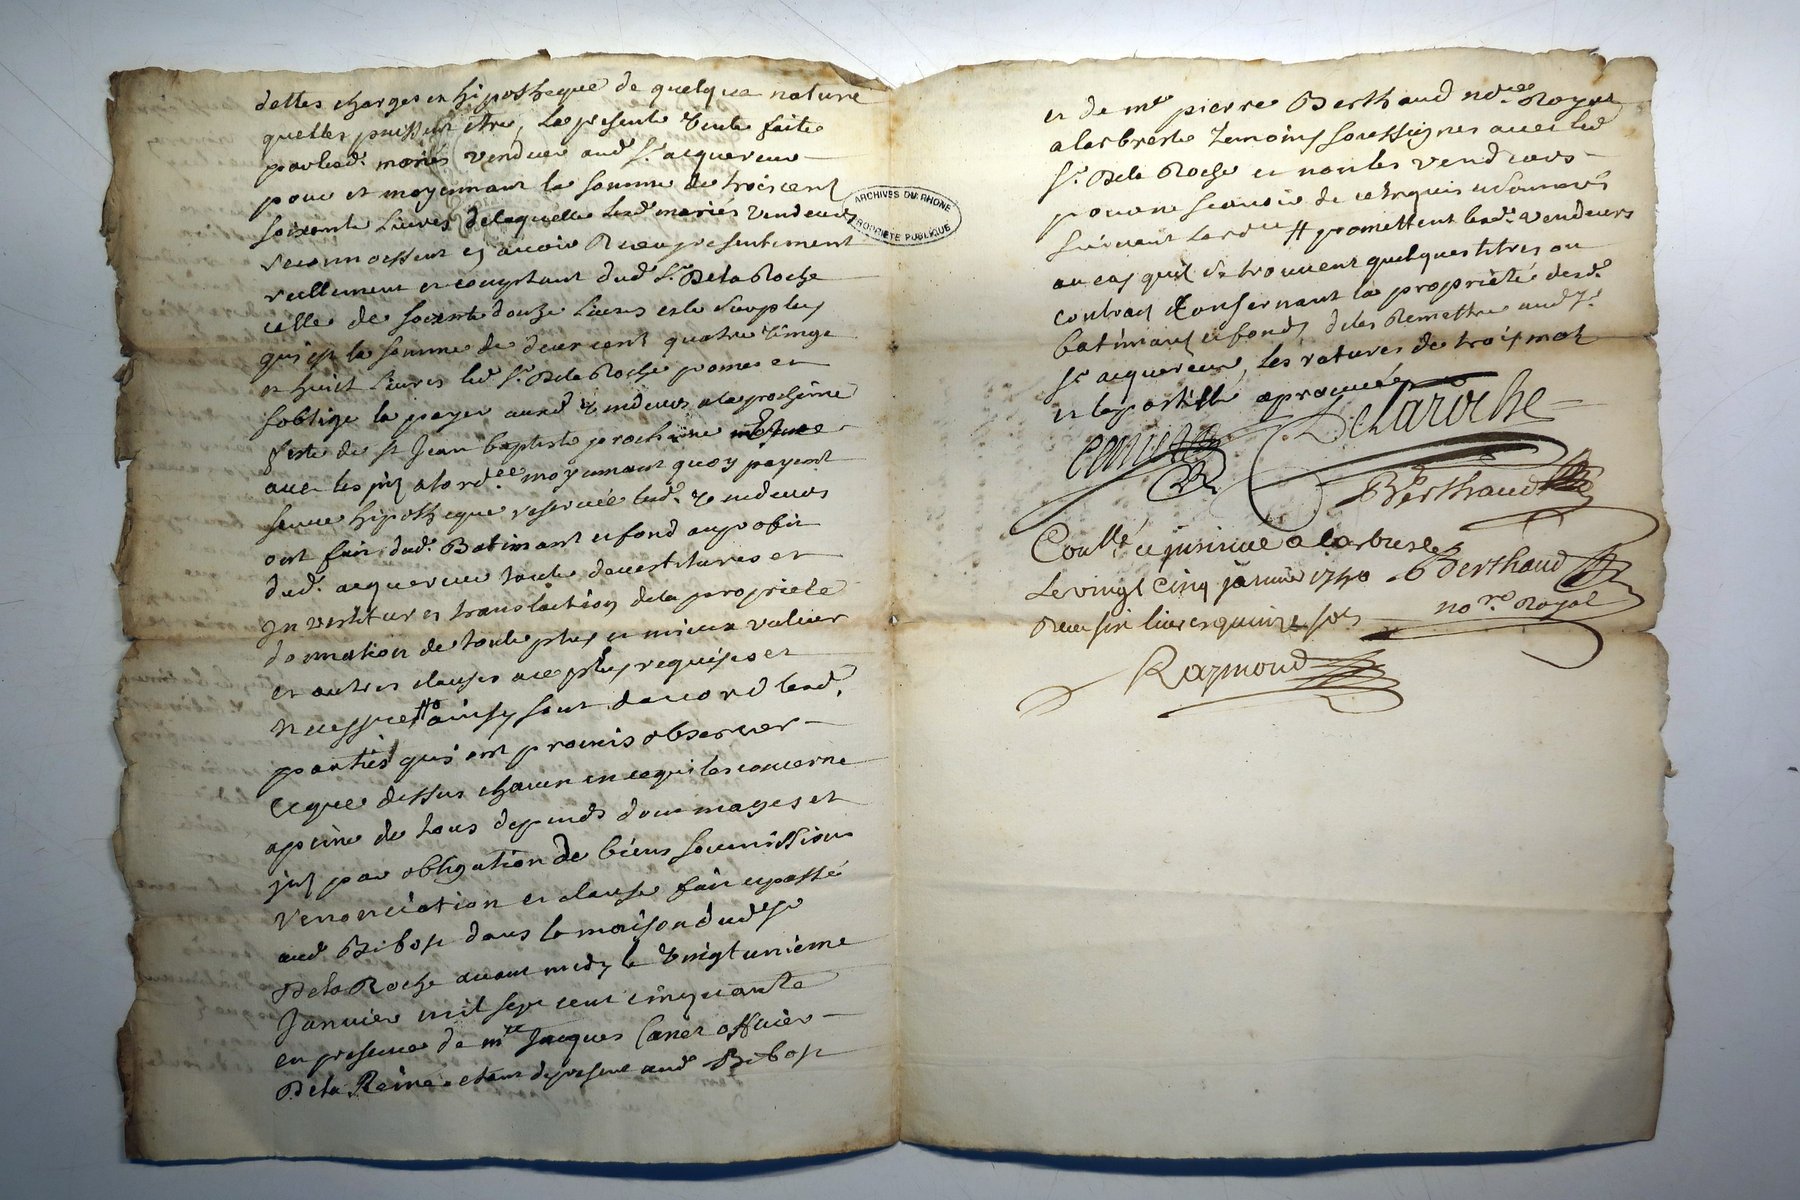 dettes charges et hipotheque de quelque nature
quelles puissent être, La presente Vente faite
par lesd. mariés vendeurs aud. Sr. acquereur
pour et moyennant la somme de trois cent
soixante Livres de laquelle lesd. mariés Vendeurs
reconnoissent en avoir Receu presentement
reellement et comptant dud. Sr. De la Roche
celle de soixante douze Livres et le surplus
qui est la somme de deux cent quatre Vingt
et huit Livres led. Sr. De la Roche promet et
soblige la payer auxd. Vendeurs a la prochaine
feste de St Jean baptiste prochaine
avec les jnts a lord.ce moyennant quoy payent
senne hipotheque reservée lesd. Vendeurs
ont fait dud. Batiment et fond au profit
dud. acquereur toute devestitures et
Investitures translation de la propriete
donnation de toute plus et mieux valuer
et autres clauses au plus requises et
necessre # ainsy sont daccord lesd.
parties qui ont promis observer
ce que dessus chacun en ce qui les concerne
a peine de tous depends dommages et
jnts par obligation de biens soumissions
renonciation et clause fait et passé
aud. Bibost dans la maison dud. Sr
De la Roche avant midy le Vingt unième
Janvier mil sept cent cinquante
en presence de mre Jacques Canet officier
De la Reine etant de present aud. Bibost
ARCHIVES DU RHONE
PROPRIÉTÉ PUBLIQUE
et de me pierre Berthaud nore Royal
a larbresle temoins soussignes avec led.
Sr. De la Roche et non les vendeurs
pour ne scavoir de ce Enquis et sommés
suivant Lord.ce # promettent lesd. vendeurs
au cas quil se trouvent quelques titres ou
contrats Consernant la propriété desd.
batiments et fonds de les Remettre aud. Sr.
Sr acquereur, les ratures de trois mots
et lapostille aprouvée
Delaroche
Berthaud
Conllé et insinué a larbresle
Le vingt cinq janvier 1750
Receu six livres quinze sols
Berthaud
nore Royal
Raymond